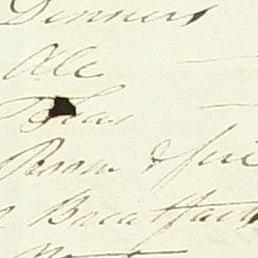 Dinners
Ale
Teas
Room & fire
Breakfasts